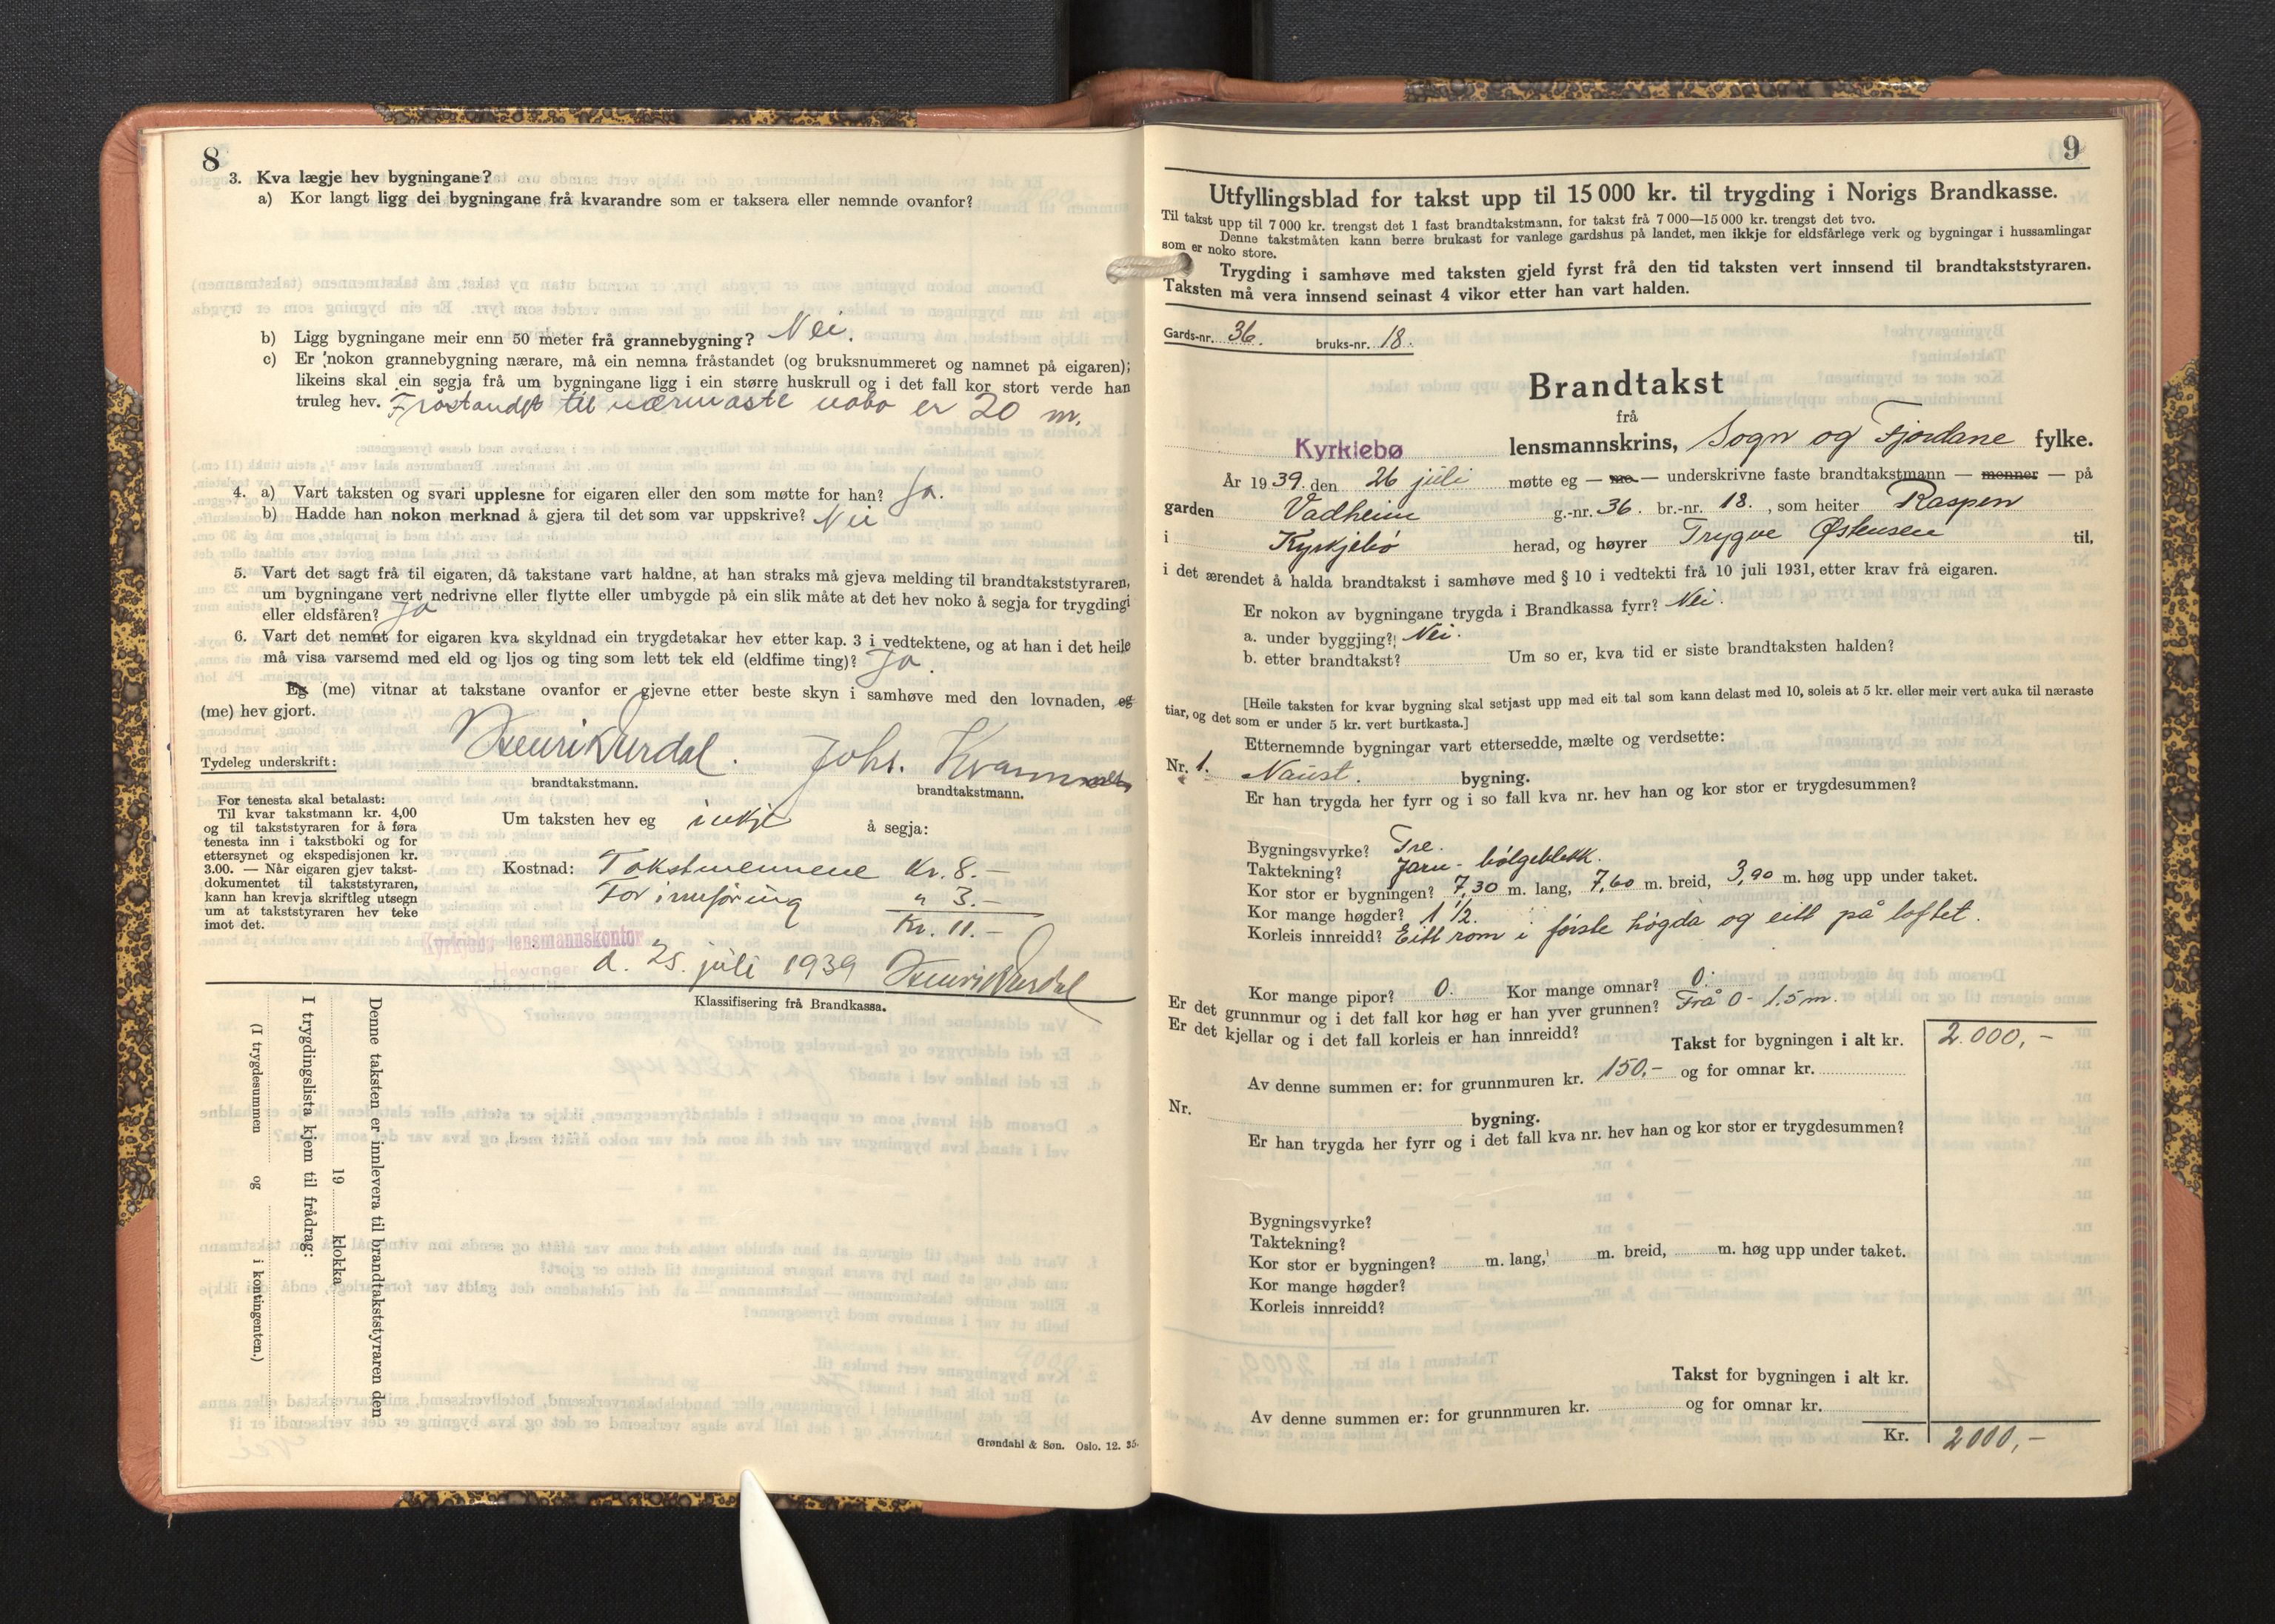 8
3. Kva lægje hev bygningane?
a) Kor langt ligg dei bygningane frå kvarandre som er taksera eller nemnde ovanfor?
b) Ligg bygningane meir enn 50 meter frå grannebygning? Nei.
c) Er nokon grannebygning nærare, må ein nemna fråstandet (og bruksnummeret og namnet på eigaren);
likeins skal ein segja frå um bygningane ligg i ein større huskrull og i det fall kor stort verde han
truleg hev. Fråstandet til nærmaste nabo er 20 m.
4. a) Vart taksten og svari upplesne for eigaren eller den som møtte for han? Ja.
b) Hadde han nokon merknad å gjera til det som var uppskrive? Nei
5. Vart det sagt frå til eigaren, då takstane vart haldne, at han straks må gjeva melding til brandtakststyraren,
um bygningane vert nedrivne eller flytte eller umbygde på ein slik måte at det hev noko å segja for trygdingi
eller eldsfåren? Ja
6. Vart det nemnt for eigaren kva skyldnad ein trygdetakar hev etter kap. 3 i vedtektene, og at han i det heile
må visa varsemd med eld og ljos og ting som lett tek eld (eldfime ting)? Ja.
Eg (me) vitnar at takstane ovanfor er gjevne etter beste skyn i samhøve med den lovnaden, eg
(me) hev gjort.
Tydeleg underskrift: Henrik Aardal. Johs. Kvammen
brandtakstmann. brandtakstmann.
For tenesta skal betalast:
Til kvar takstmann kr. 4,00
og til takststyraren for å føra
tenesta inn i takstboki og for
ettersynet og ekspedisjonen kr.
3.00. — Når eigaren gjev takst-
dokumentet til takststyraren,
kann han krevja skriftleg utsegn
um at takststyraren hev teke
imot det.
Um taksten hev eg inkje å segja:
Kostnad: Takstmennene Kr. 8.-
For innføring " 3.-
Kr. 11.-
Kyrkjebø lensmannskontor
Høyanger d. 25. juli 1939 Henrik Aardal
Klassifisering frå Brandkassa.
Denne taksten er innlevera til brandtakststyraren den
19 klokka
I trygdingslista kjem til frådrag:
(I trygdesummen og i kontingenten.)
Grøndahl & Søn. Oslo. 12. 35.
9
Utfyllingsblad for takst upp til 15 000 kr. til trygding i Norigs Brandkasse.
Til takst upp til 7 000 kr. trengst det 1 fast brandtakstmann, for takst frå 7 000—15 000 kr. trengst det tvo.
Denne takstmåten kann berre brukast for vanlege gardshus på landet, men ikkje for eldsfårlege verk og bygningar i hussamlingar
som er noko store.
Trygding i samhøve med taksten gjeld fyrst frå den tid taksten vert innsend til brandtakststyraren.
Taksten må vera innsend seinast 4 vikor etter han vart halden.
Gards-nr. 36. bruks-nr. 18.
Brandtakst
frå
Kyrkjebø lensmannskrins, Sogn og Fjordane fylke.
År 1939. den 26 juli møtte eg — me — underskrivne faste brandtakstmann — menner — på
garden Vadheim g.-nr. 36. br.-nr. 18. , som heiter Raspen
i Kyrkjebø herad, og høyrer Trygve Østensen til,
i det ærendet å halda brandtakst i samhøve med § 10 i vedtekti frå 10 juli 1931, etter krav frå eigaren.
Er nokon av bygningane trygda i Brandkassa fyrr? Nei.
a. under byggjing? Nei.
b. etter brandtakst? Um so er, kva tid er siste brandtaksten halden?
[Heile taksten for kvar bygning skal setjast upp med eit tal som kann delast med 10, soleis at 5 kr. eller meir vert auka til næraste
tiar, og det som er under 5 kr. vert burtkasta.]
Etternemnde bygningar vart ettersedde, mælte og verdsette:
Nr. 1. Naust. bygning.
Er han trygda her fyrr og i so fall kva nr. hev han og kor stor er trygdesummen?
Bygningsvyrke? Tre.
Taktekning? Jarn- bölgeblekk.
Kor stor er bygningen? 7,30 m. lang, 7,60 m. breid, 3,90 m. høg upp under taket.
Kor mange høgder? 1 1/2.
Korleis innreidd? Eitt rom i første högda og eitt på loftet.
Kor mange pipor? 0. Kor mange omnar? 0.
Er det grunnmur og i det fall kor høg er han yver grunnen? Frå 0 - 1.5 m.
Er det kjellar og i det fall korleis er han innreidd?
Takst for bygningen i alt kr. 2.000,-
Av denne summen er: for grunnmuren kr. 150,- og for omnar kr.
Nr. bygning.
Er han trygda her fyrr og i det fall kva nr. hev han og kor stor er trygdesummen?
Bygningsvyrke?
Taktekning?
Kor stor er bygningen? m. lang, m. breid, m. høg upp under taket.
Kor mange høgder?
Korleis innreidd?
Takst for bygningen i alt kr.
Av denne summen er: for grunnmuren kr. og for omnar kr.
Kr. 2000,-